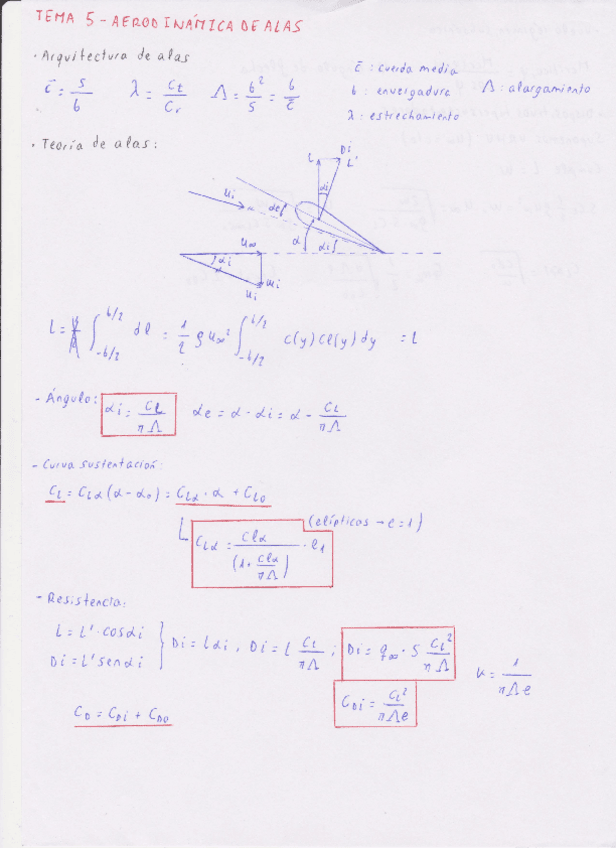 TEMA 5 - AERODINÁMICA DE ALAS
· Arquitectura de alas
c̄ = S/b   λ = Ct/Cr   Λ = b²/S = b/c̄
c̄ : cuerda media
b : envergadura   Λ : alargamiento
λ : estrechamiento
· Teoría de alas:
L   Di   L'
αi
ui   αe   α   αi
u∞
αi
ui
ui
L = ∫_{-b/2}^{b/2} dl = 1/2 ρ u∞² ∫_{-b/2}^{b/2} c(y) Cl(y) dy = L
- Ángulo: αi = CL/πΛ   αe = α - αi = α - CL/πΛ
- Curva sustentación:
CL = CLα (α - α0) = CLα · α + CL0
(elípticos → e = 1)
CLα = Clα/(1 + Clα/πΛ) · e1
- Resistencia:
L = L' · cosαi
Di = L' senαi
} Di = Lαi , Di = L CL/πΛ ; Di = q∞ · S CL²/πΛ
k = 1/πΛe
CDi = CL²/πΛe
CD = CDi + CD0